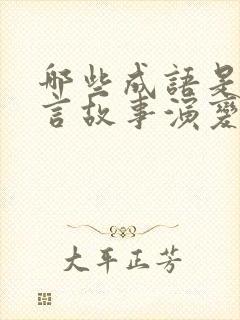 哪些成語是
言故事演變
大平正芳